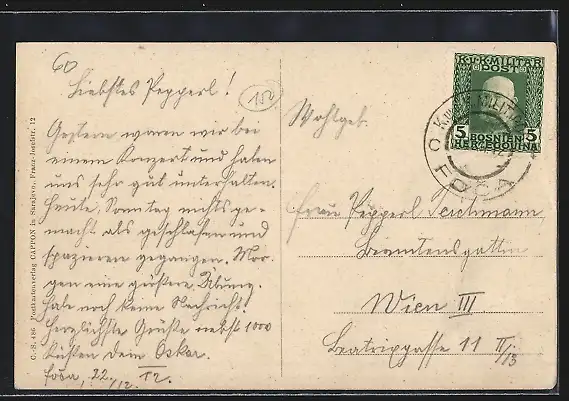 60
Liebstes Pepperl!
152
Gestern waren wir bei
einem Konzert und haben
uns sehr gut unterhalten.
Heute, Sonntag nichts ge-
macht als geschlafen und
spazieren gegangen. Mor-
gen eine größere Übung.
Hab noch keine Nachricht!
Herzlichste Grüße nebst 1000
Küssen Dein Oskar.
Foča, 22./12. 12.
C. S. 486 Postkartenverlag CAPPON in Sarajevo, Franz-Josefstr. 12
K.u.K. MILITÄR
POST
5 BOSNIEN 5
HERZEGOVINA
K.u.K. MILIT
FOČA
Wohlgeb.
Frau Pepperl Teichmann,
Beamtensgattin
Wien III
Beatrixgasse 11 II/13